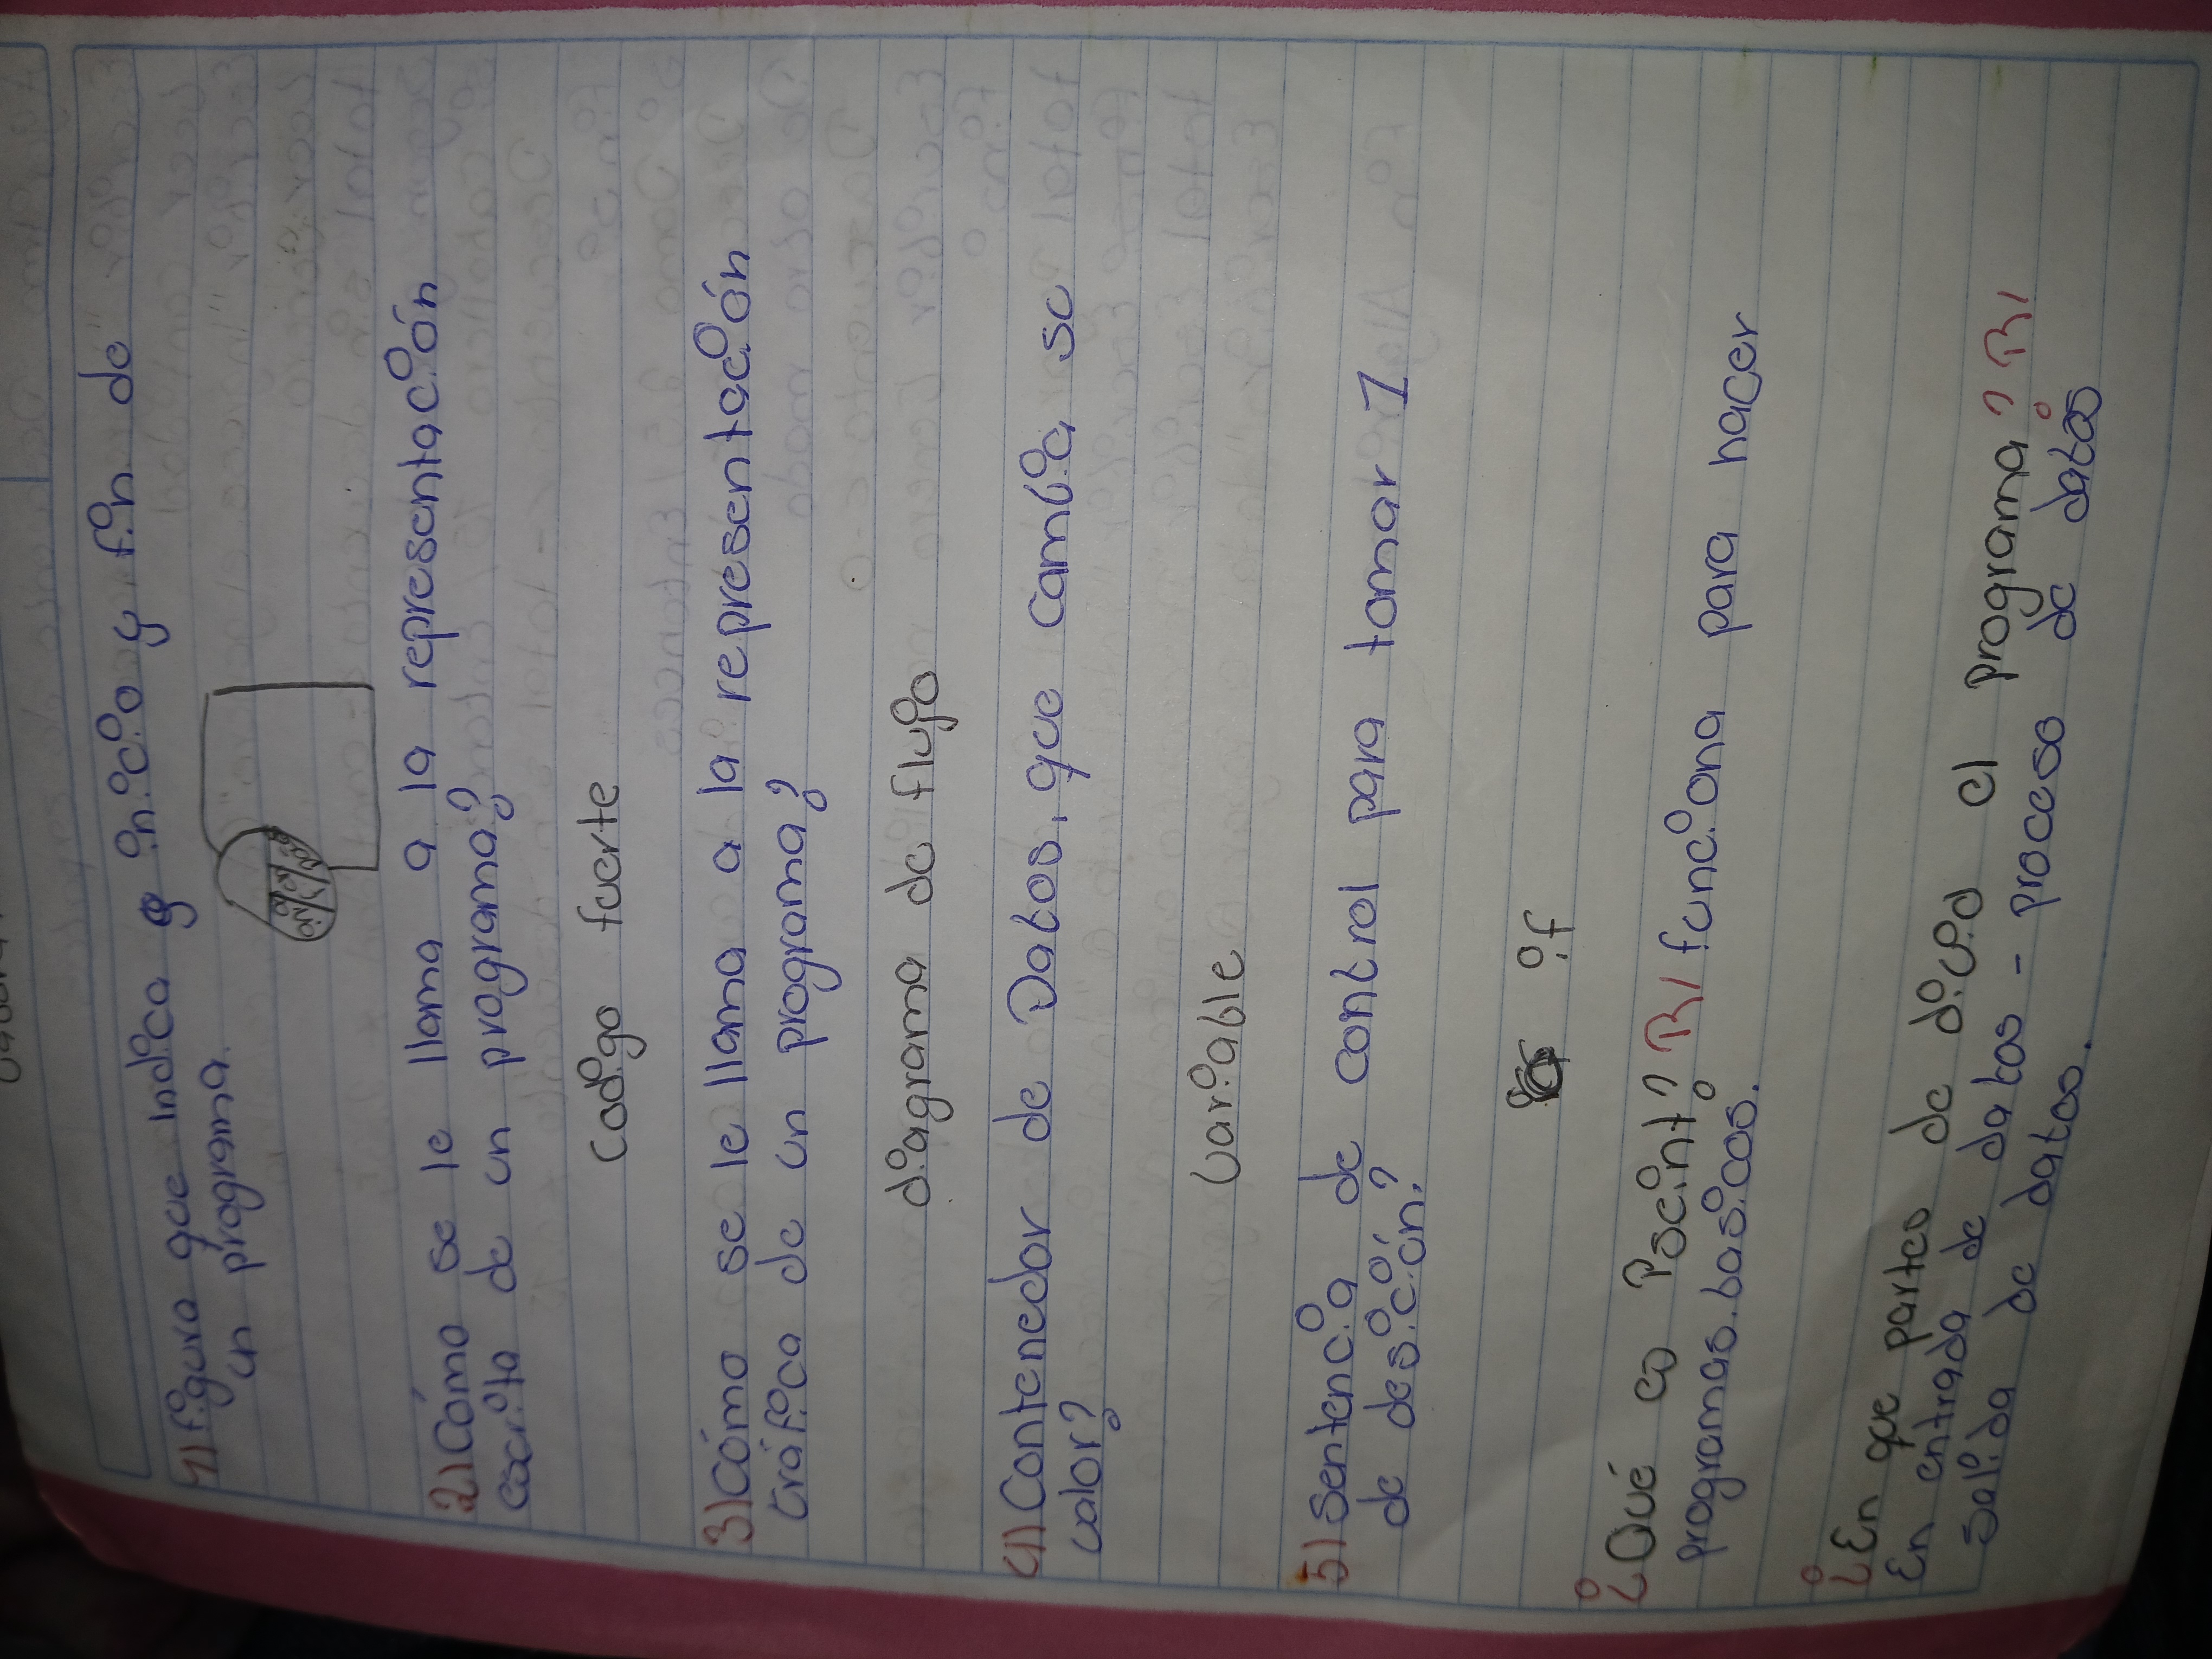 1) figura que indica y inicio y fin de
un programa.
2) Cómo se le llama a la representación
escrita de un programa?
codigo fuerte
3) Cómo se le llama a la representación
gráfica de un programa?
diagrama de flujo
4) Contenedor de Datos, que cambia se
valor?
variable
5) Sentencia de control para tomar 1
de desición?
if
¿Qué es Pseint? R/ funciona para hacer
programas basicos.
¿En que partes de divid el programa? R/
En entrada de datos - proceso de datos
Salida de datos.